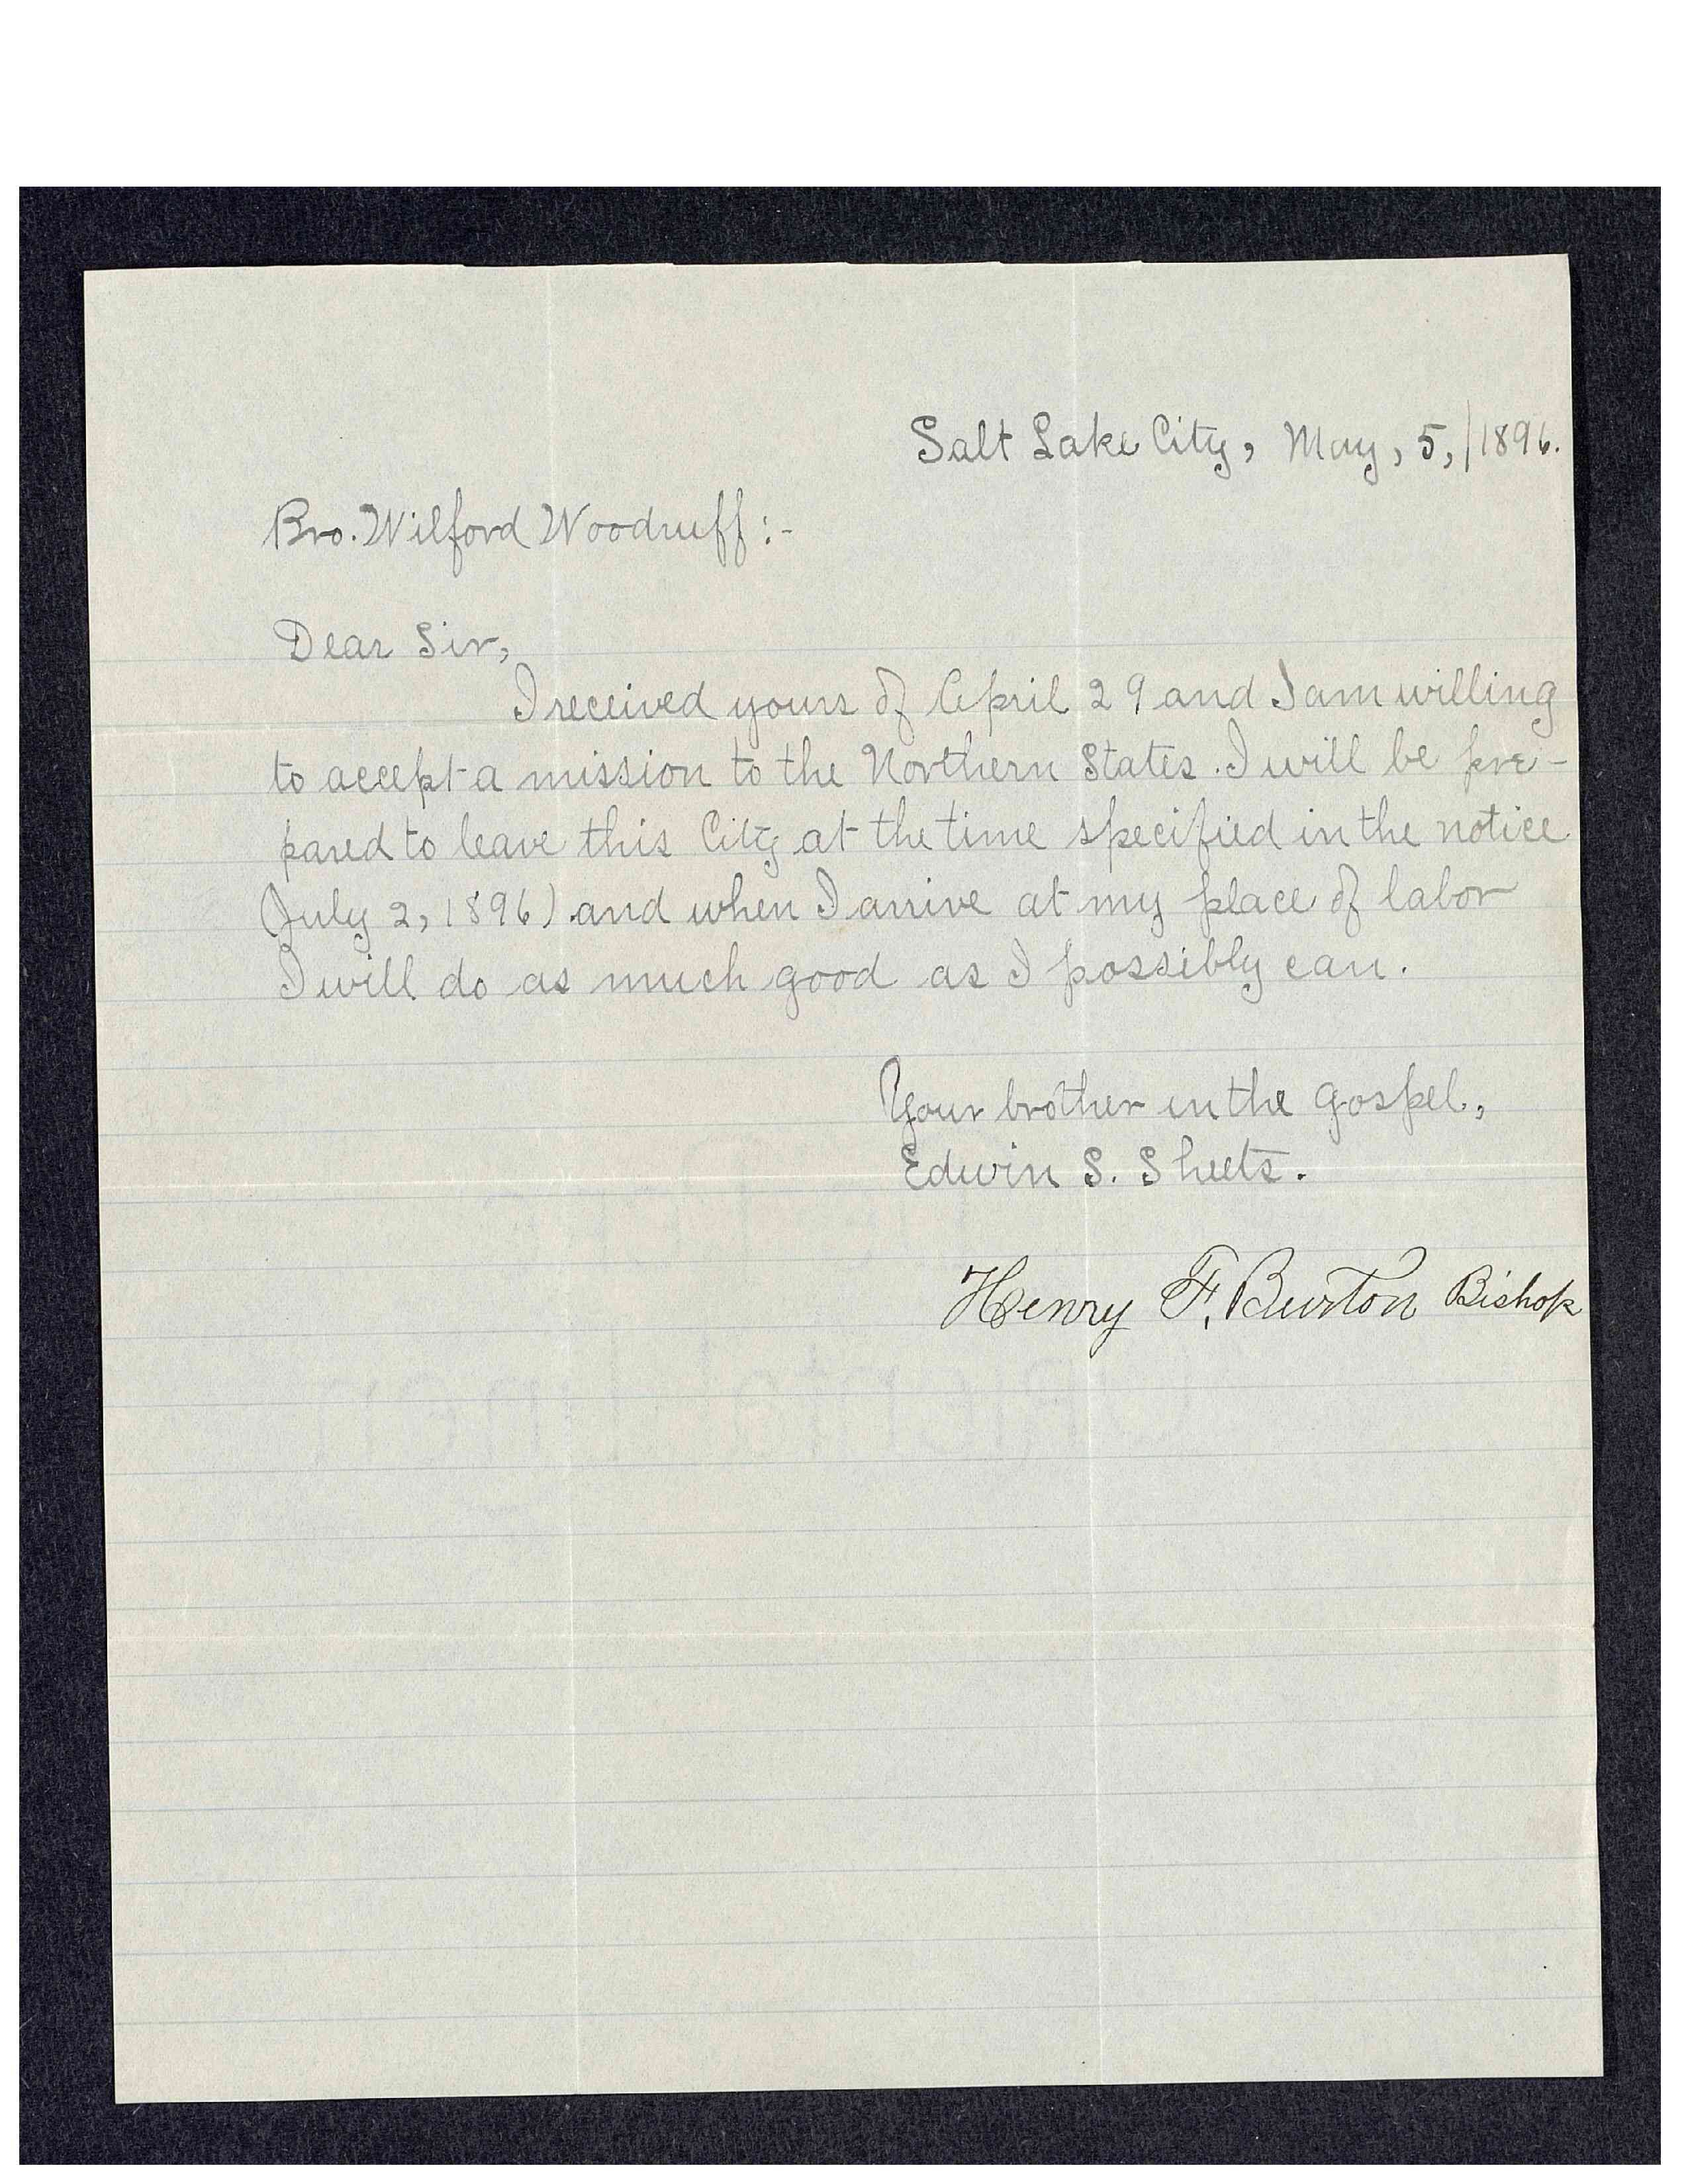 Salt Lake City, May, 5, /1896.
Bro. Wilford Woodruff:-
Dear Sir,
I received yours of April 29 and I am willing
to accept a mission to the Northern States. I will be pre-
pared to leave this City at the time specified in the notice
(July 2, 1896) and when I arrive at my place of labor
I will do as much good as I possibly can.
Your brother in the gospel,
Edwin S. Sheets.
Henry F. Burton Bishop